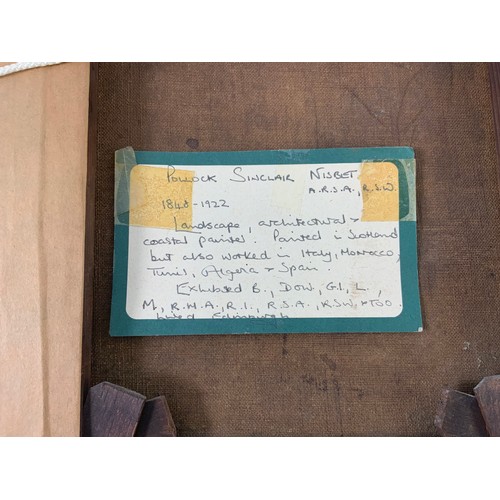 POLLOCK SINCLAIR NISBET
A.R.S.A., R.S.W.
1848-1922
Landscape, architectural &
coastal painter. Painted in Scotland
but also worked in Italy, Morocco,
Tunis, Algeria & Spain.
Exhibited B., DOW, G.I., L.,
M., R.H.A., R.I., R.S.A., RSW & TOO.
Lived Edinburgh